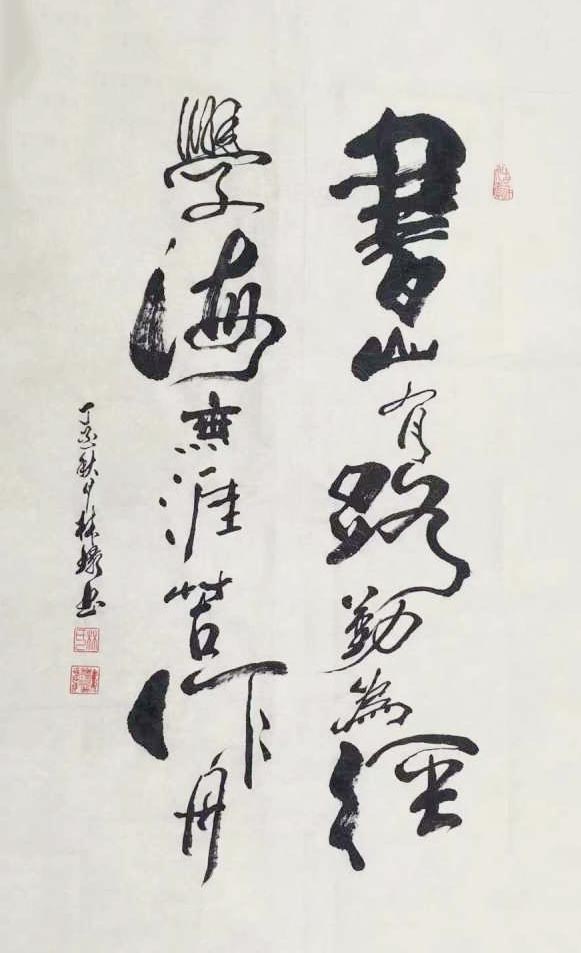 書山有路勤為徑
學海無涯苦作舟
丁亥秋月林